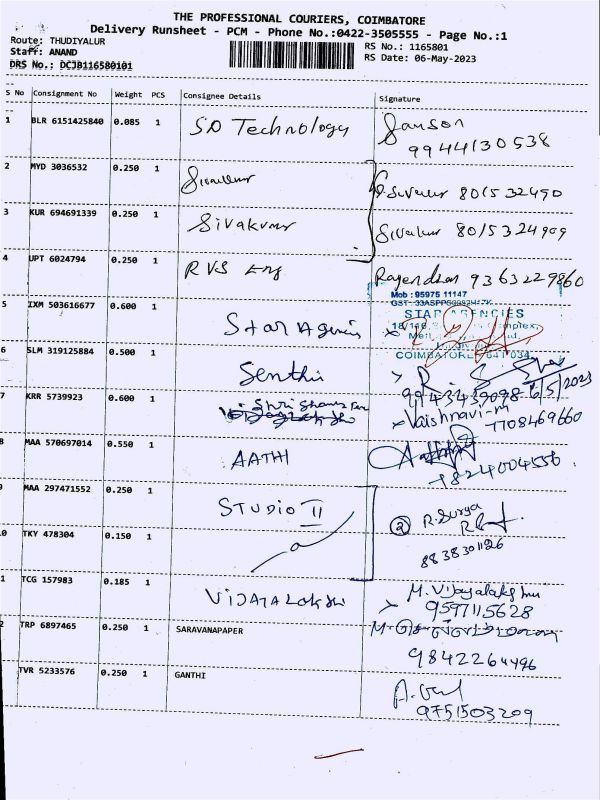 THE PROFESSIONAL COURIERS, COIMBATORE
Delivery Runsheet - PCM - Phone No.:0422-3505555 - Page No.:1
Route: THUDIYALUR
Staff: ANAND
DRS No.: DCJB116580101
RS No.: 1165801
RS Date: 06-May-2023
S No Consignment No Weight PCS Consignee Details Signature
1 BLR 6151425840 0.085 1 SD Technology Sanson
9944130538
2 MYD 3036532 0.250 1
3 KUR 694691339 0.250 1 Sivakumar 8015324909
4 UPT 6024794 0.250 1 RVS Eng Rajendran 9363229860
Mob : 95975 11147
STAR AGENCIES
COIMBATORE - 641 034
5 IXM 503616677 0.600 1 Star Agencies
6 SLM 319125884 0.500 1 Senthil
9943439098 6/5/2023
7 KRR 5739923 0.600 1 Vaishnavi-m
7708469660
8 MAA 570697014 0.550 1 AATHI
8224004556
MAA 297471552 0.250 1 STUDIO II 2 R. Surya
0 TKY 478304 0.150 1 8838301126
1 TCG 157983 0.185 1 VIJAYALakshmi M. Vijayalakshmi
9597115628
2 TRP 6897465 0.250 1 SARAVANAPAPER
9842264496
TVR 5233576 0.250 1 GANTHI
9751503209